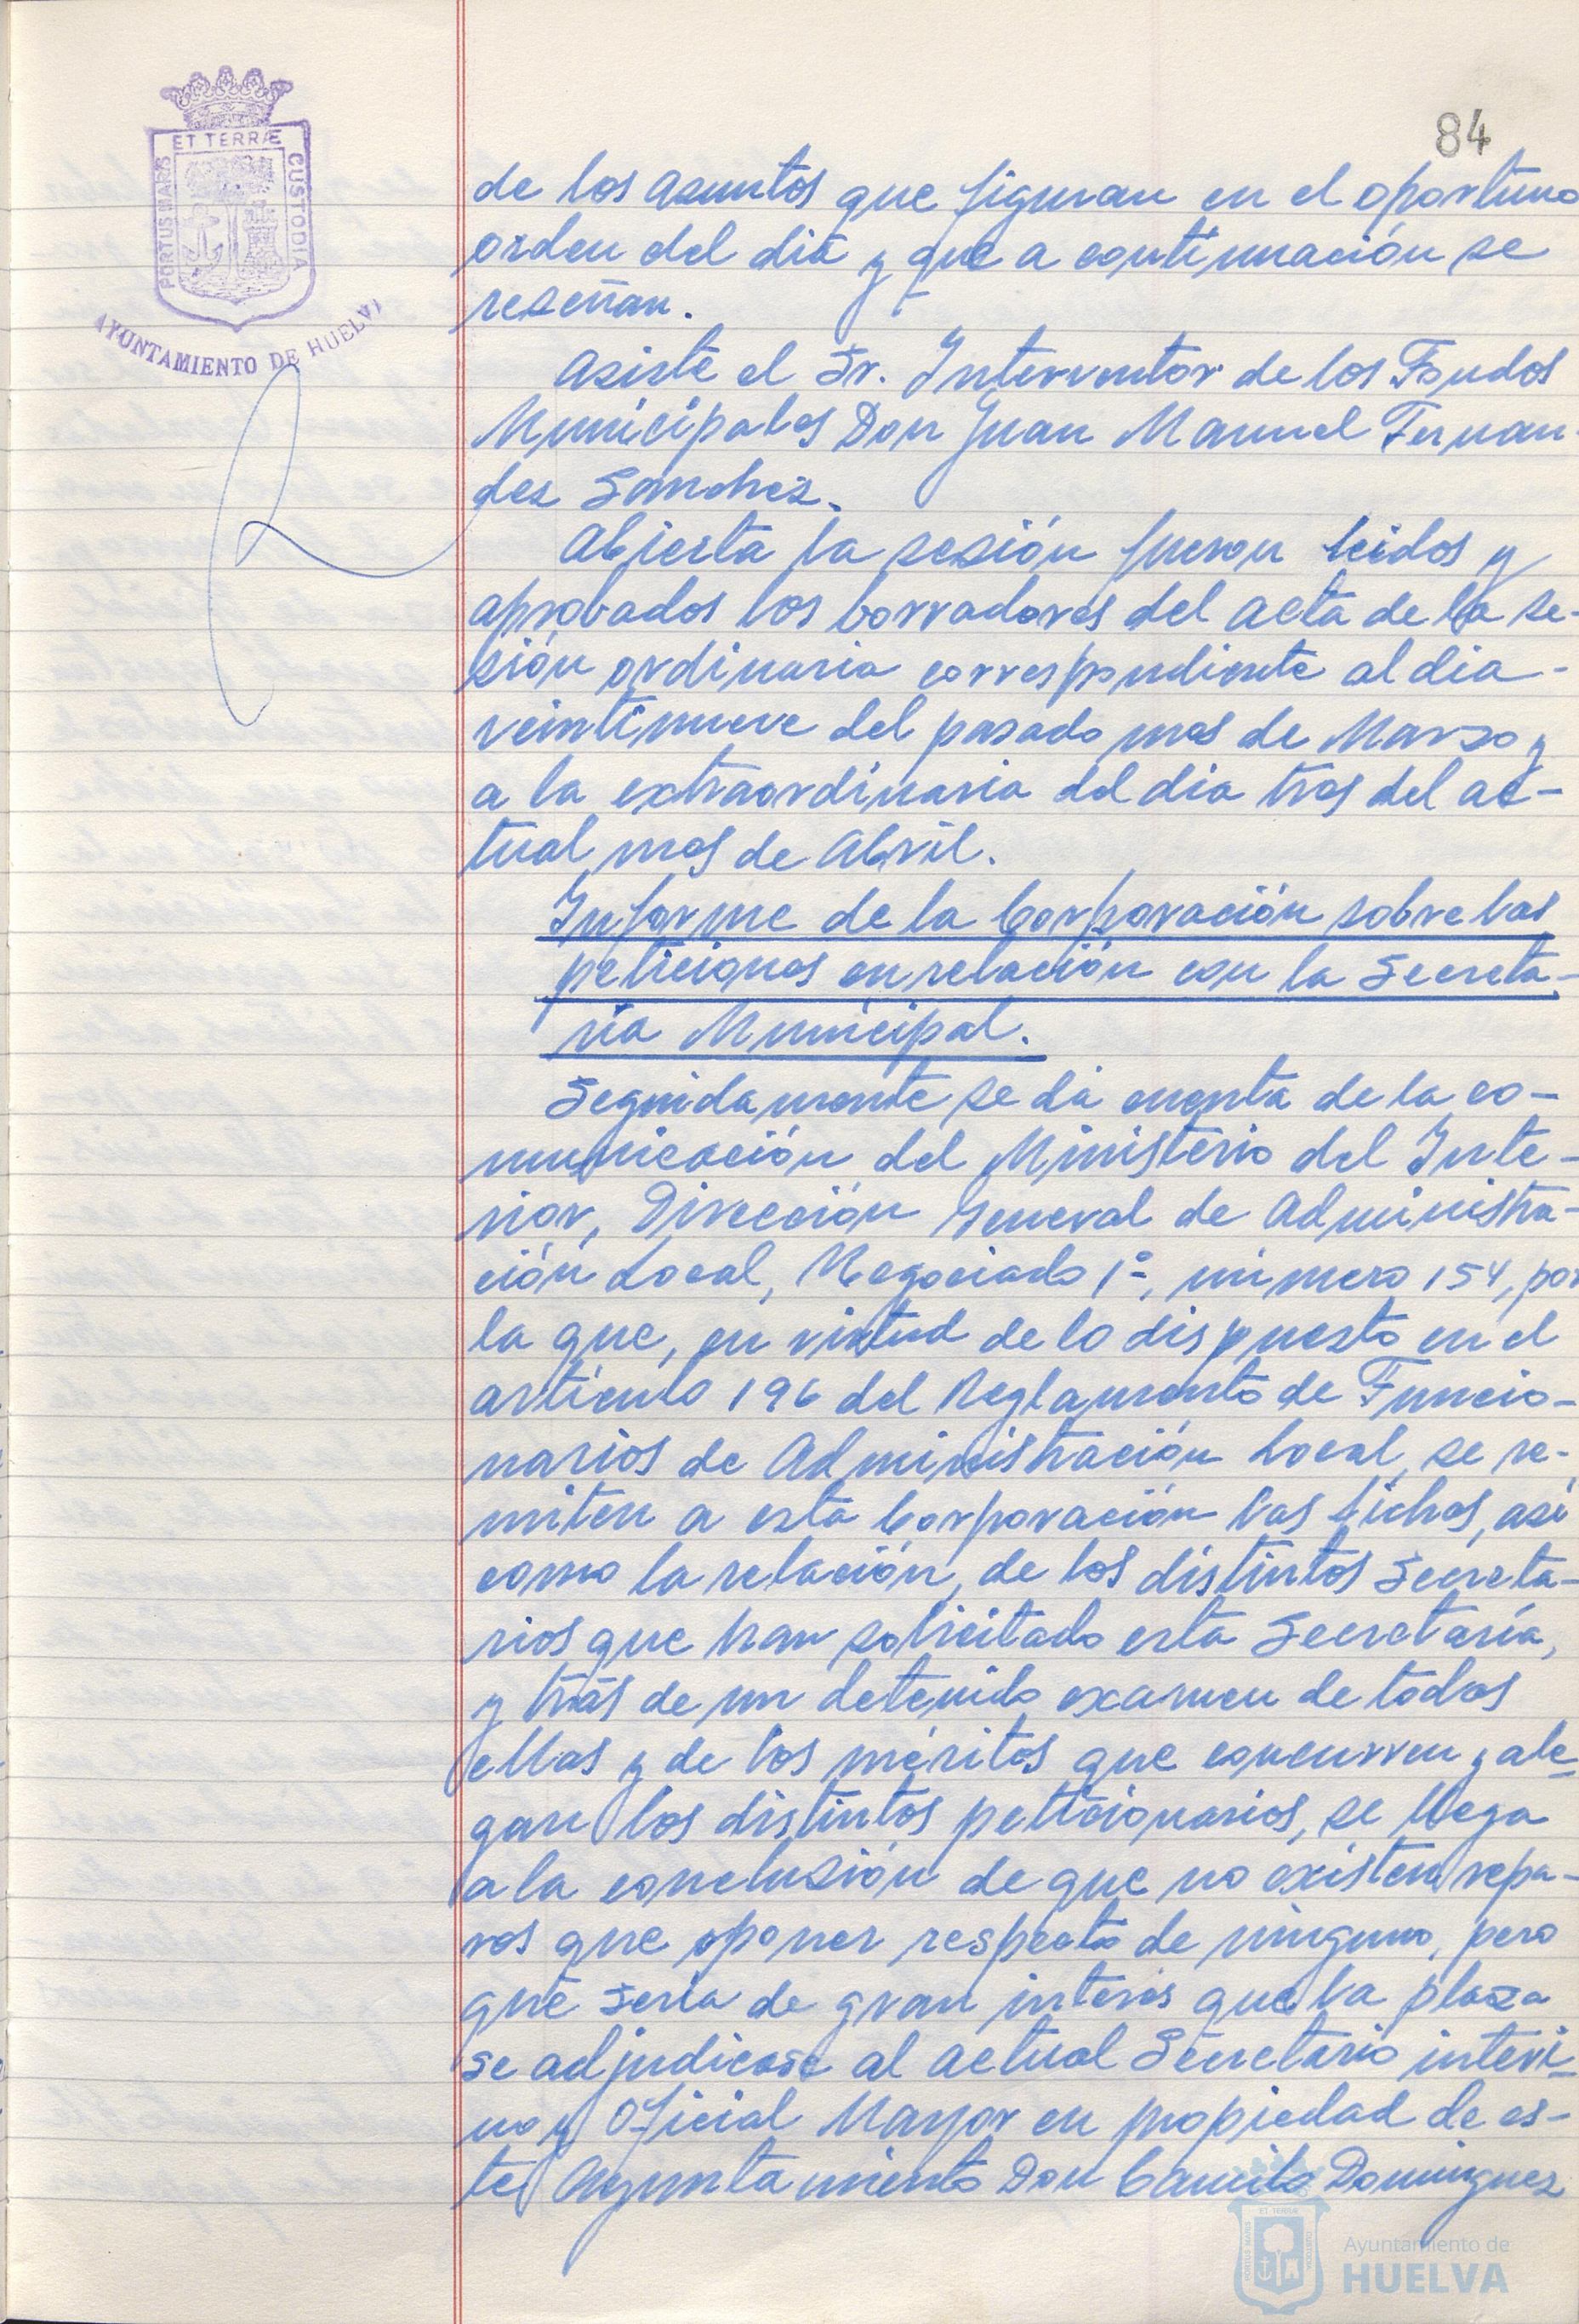 84
ET TERRÆ
PORTUS MARIS
CUSTODIA
AYUNTAMIENTO DE HUELVA
de los asuntos que figuran en el oportuno
orden del dia y que a continuación se
reseñan.
Asiste el Sr. Interventor de los Fondos
Municipales Don Juan Manuel Fernan-
dez Sanchez.
Abierta la sesión fueron leidos y
aprobados los borradores del acta de la se-
sión ordinaria correspondiente al dia -
veintinueve del pasado mes de Marzo y
a la extraordinaria del dia tres del ac-
tual mes de Abril.
Informe de la Corporación sobre las
peticiones en relación con la Secreta-
ria Municipal.
Seguidamente se dá cuenta de la co-
municación del Ministerio del Inte-
rior, Dirección General de Administra-
ción Local, Negociado 1º, número 154, por
la que, en virtud de lo dispuesto en el
artículo 196 del Reglamento de Funcio-
narios de Administración Local, se re-
miten a esta Corporación las fichas, asi
como la relación, de los distintos Secreta-
rios que han solicitado esta Secretaría,
y trás de un detenido examen de todas
ellas y de los méritos que concurren y ale-
gan los distintos peticionarios, se llega
a la conclusión de que no existen repa-
ros que oponer respecto de ninguno, pero
que seria de gran interés que la plaza
se adjudicase al actual Secretario interi-
no y Oficial Mayor en propiedad de es-
te Ayuntamiento Don Camilo Dominguez
Ayuntamiento de
HUELVA